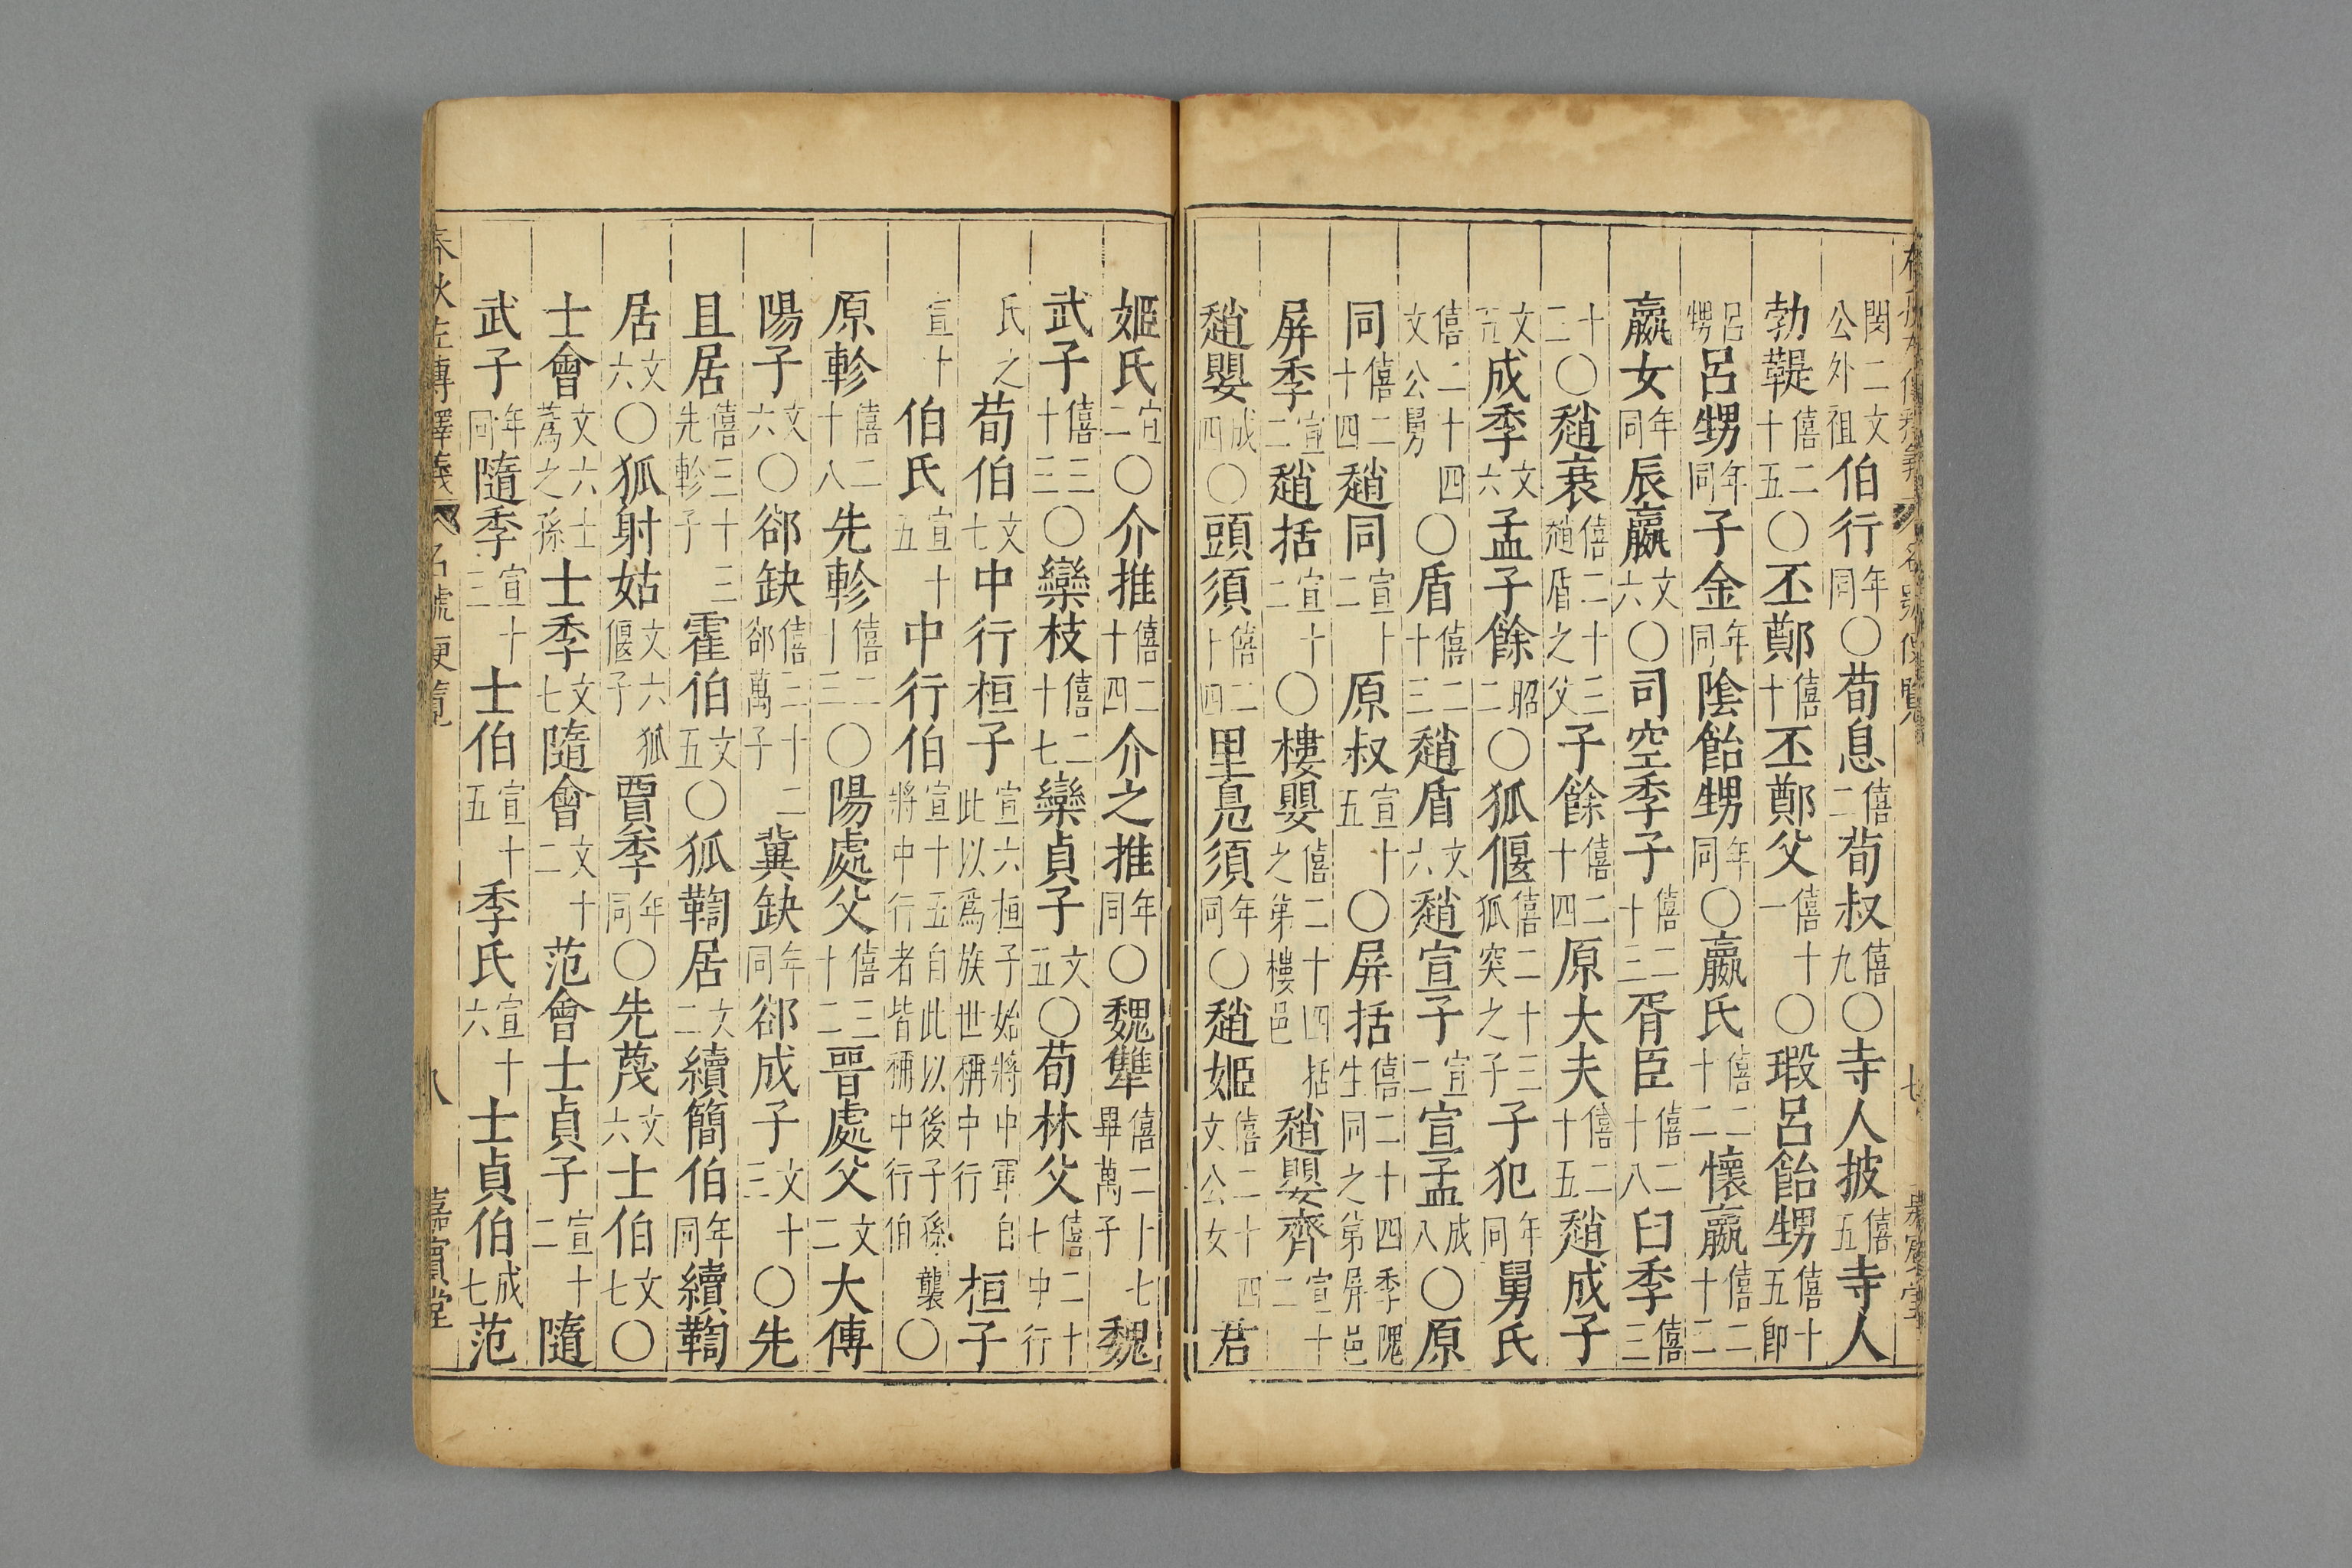 閔二文公外祖伯行年同〇荀息僖二荀叔僖九〇寺人披僖五寺人
勃鞮僖二十五〇丕鄭僖十丕鄭父僖十一〇瑕呂飴甥僖十五即
呂甥呂甥年同子金年同陰飴甥年同〇嬴氏僖二十二懷嬴僖二十三
嬴女年同辰嬴文六〇司空季子僖二十三胥臣僖二十八臼季僖三
十二〇趙衰僖二十三趙盾之父子餘僖二十四原大夫僖二十五趙成子
文五成季文六孟子餘昭二〇狐偃僖二十三狐突之子子犯年同舅氏
僖二十四文公舅〇盾僖二十三趙盾文六趙宣子宣二宣孟成八〇原
同僖二十四趙同宣十二原叔宣十五〇屏括僖二十四季隗生同之弟屏邑
屏季宣二趙括宣十二〇樓嬰僖二十四括之弟樓邑趙嬰齊宣十二
趙嬰成四〇頭須僖二十四里鳧須年同〇趙姬僖二十四文公女君
姬氏宣二〇介推僖二十四介之推年同〇魏犨僖二十七畢萬子魏
武子僖二十三〇欒枝僖二十七欒貞子文五〇荀林父僖二十七中行
氏之荀伯文七中行桓子宣六桓子始將中軍自此以為族世稱中行桓子
宣十伯氏宣十五中行伯宣十五自此以後子孫襲將中行者皆稱中行伯〇
原軫僖二十八先軫僖二十三〇陽處父僖三十二晉處父文二大傅
陽子文六〇郤缺僖三十二郤萬子冀缺年同郤成子文十三〇先
且居僖三十三先軫子霍伯文五〇狐鞫居文二續簡伯年同續鞫
居文六〇狐射姑文六狐偃子賈季年同〇先蔑文六士伯文七〇
士會文六士蒍之孫士季文七隨會文十二范會士貞子宣十二隨
武子年同隨季宣十三士伯宣十五季氏宣十六士貞伯成七范
春秋左傳釋義 名號便覽 八 嘉賓堂